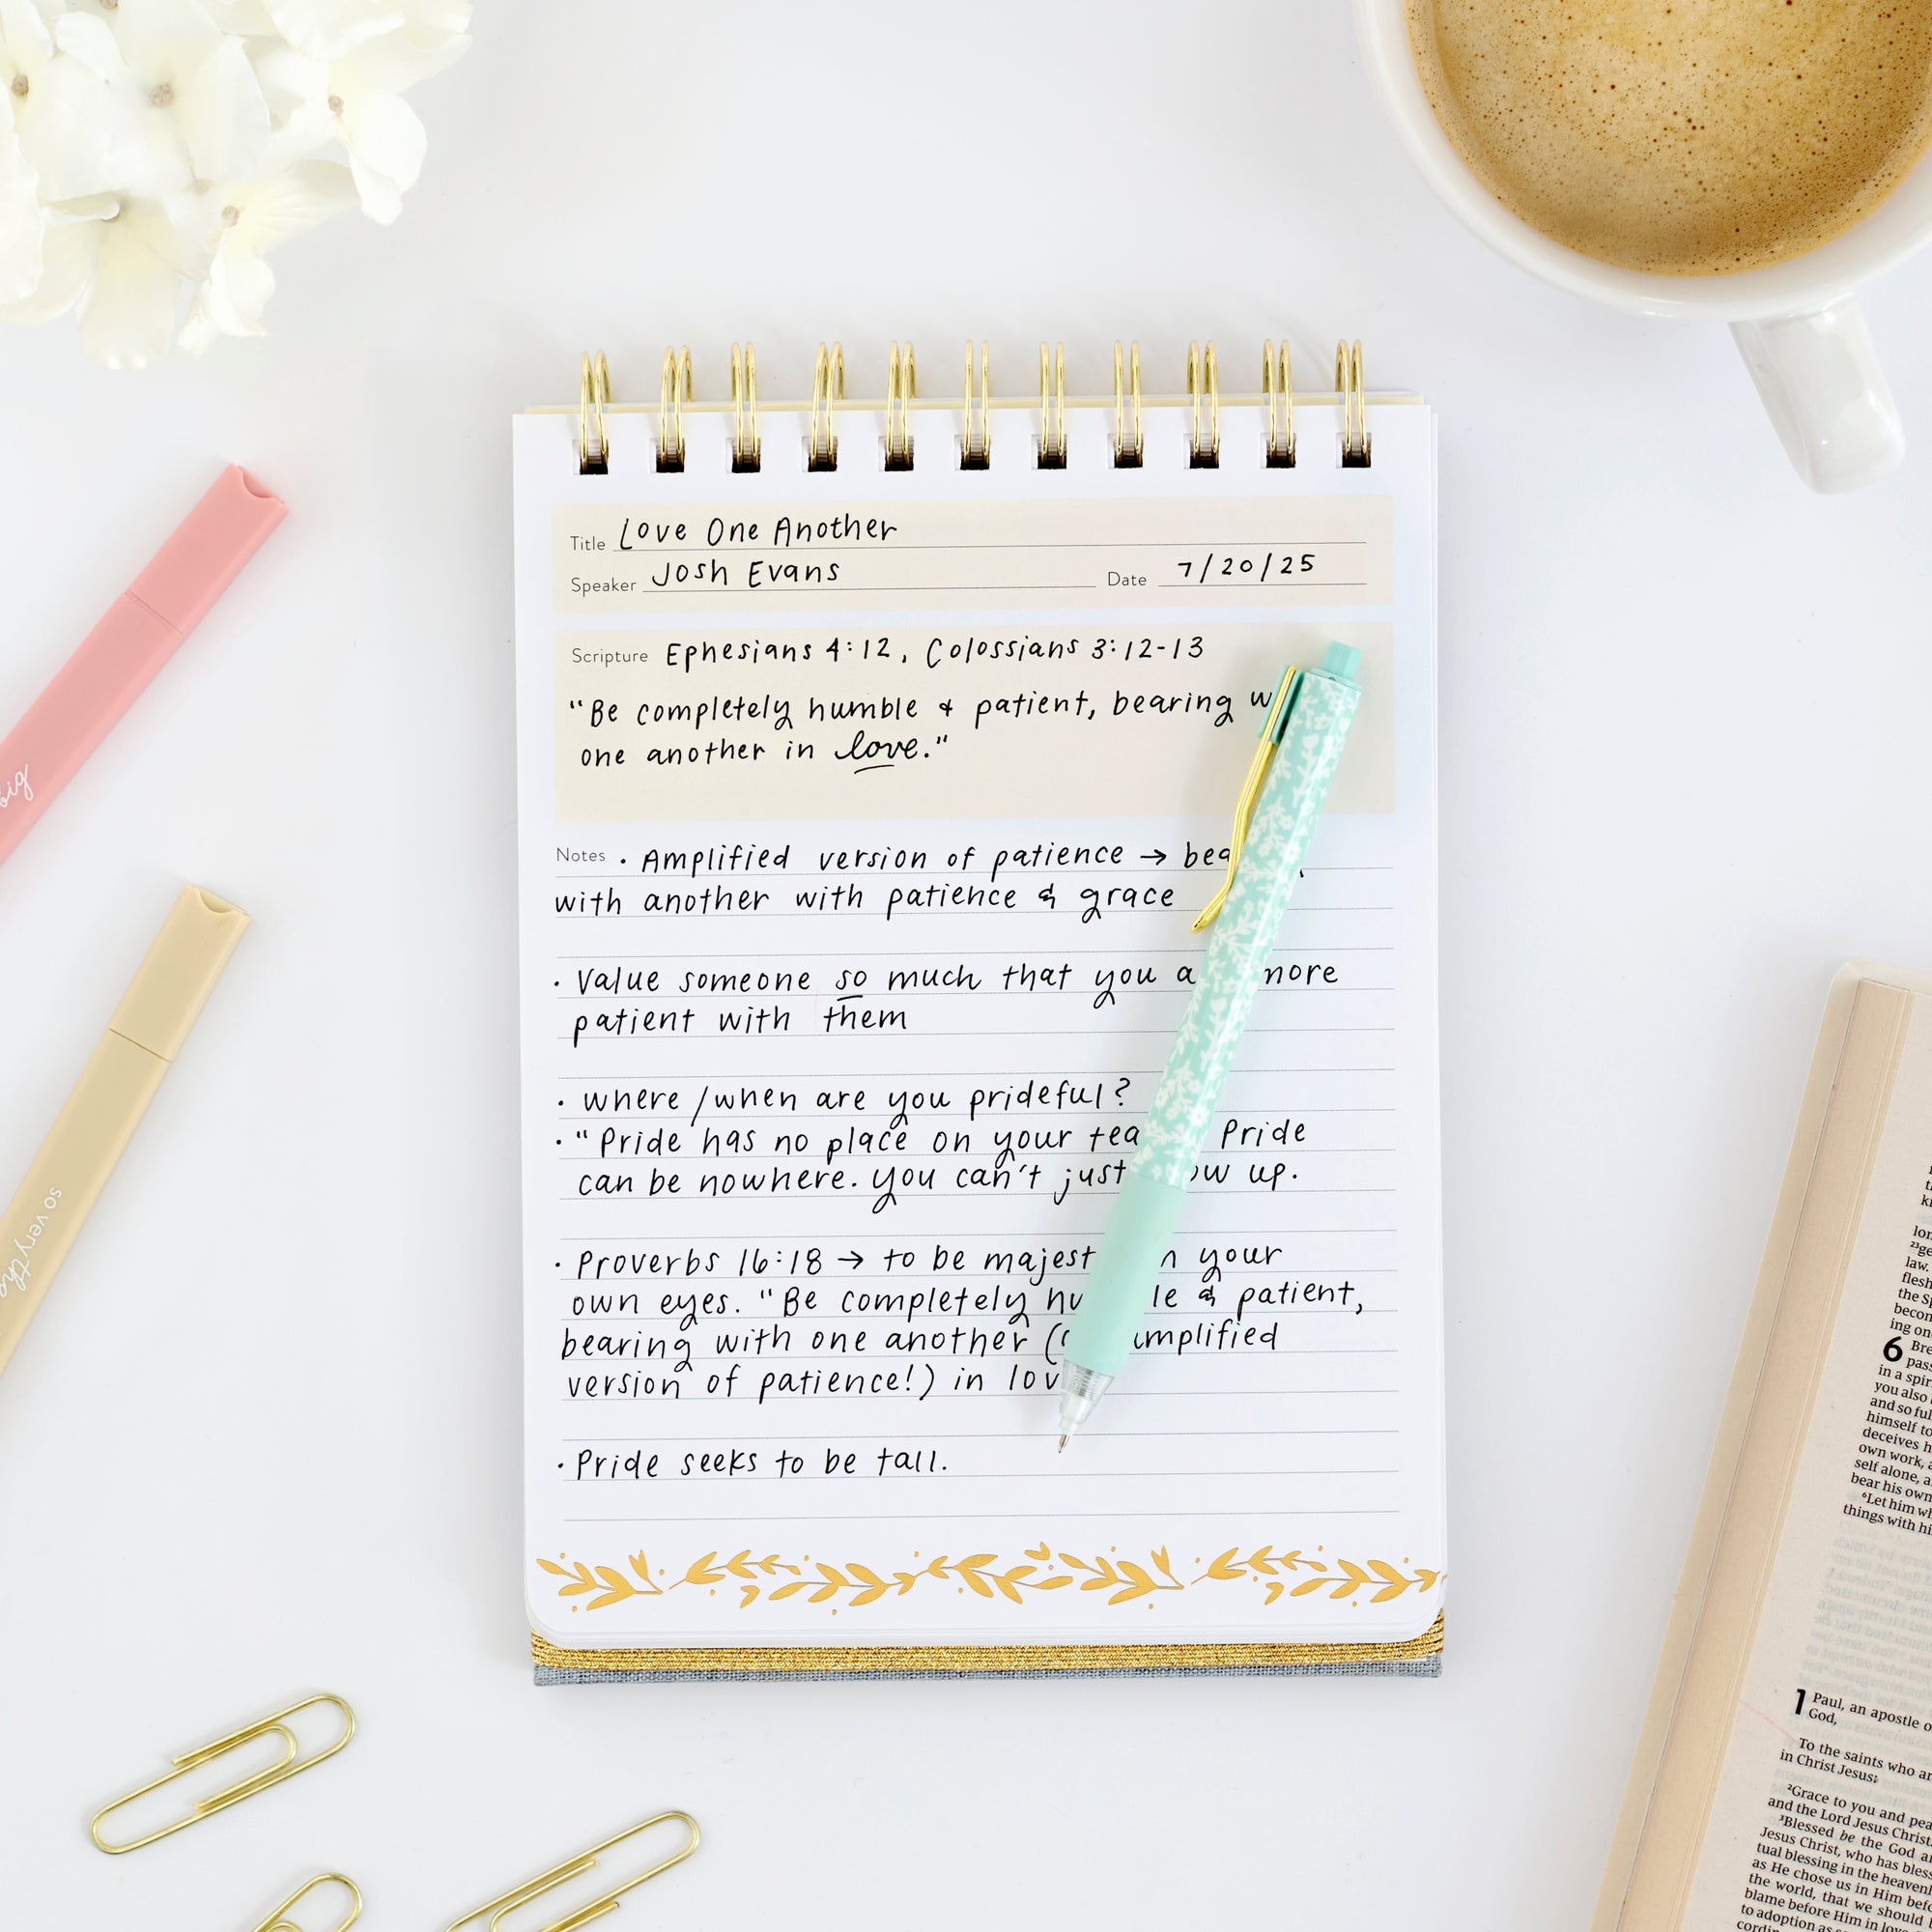 Title Love One Another
Speaker Josh Evans Date 7/20/25
Scripture Ephesians 4:12, Colossians 3:12-13
"Be completely humble & patient, bearing
one another in love."
Notes · Amplified version of patience →
with another with patience & grace
· Value someone so much that you more
patient with them
· where/when are you prideful?
· "Pride has no place on your Pride
can be nowhere. you can't just up.
· Proverbs 16:18 → to be your
own eyes. "Be completely & patient,
bearing with one another
version of patience!) in
· Pride seeks to be tall.
big
so very
lon
23ge
law.
flesh
the Sp
becom
ing on
6 Bre
pass
in a spir
you also
and so ful
himself to
deceives h
own work, a
self alone, a
bear his own
6Let him wh
things with hi
1 Paul, an apostle o
God,
To the saints who ar
in Christ Jesus:
2Grace to you and pea
and the Lord Jesus Christ.
3Blessed be the God an
Jesus Christ, who has bless
tual blessing in the heavenl
as He chose us in Him befo
the world, that we should
blame before Him in love
to adoption as